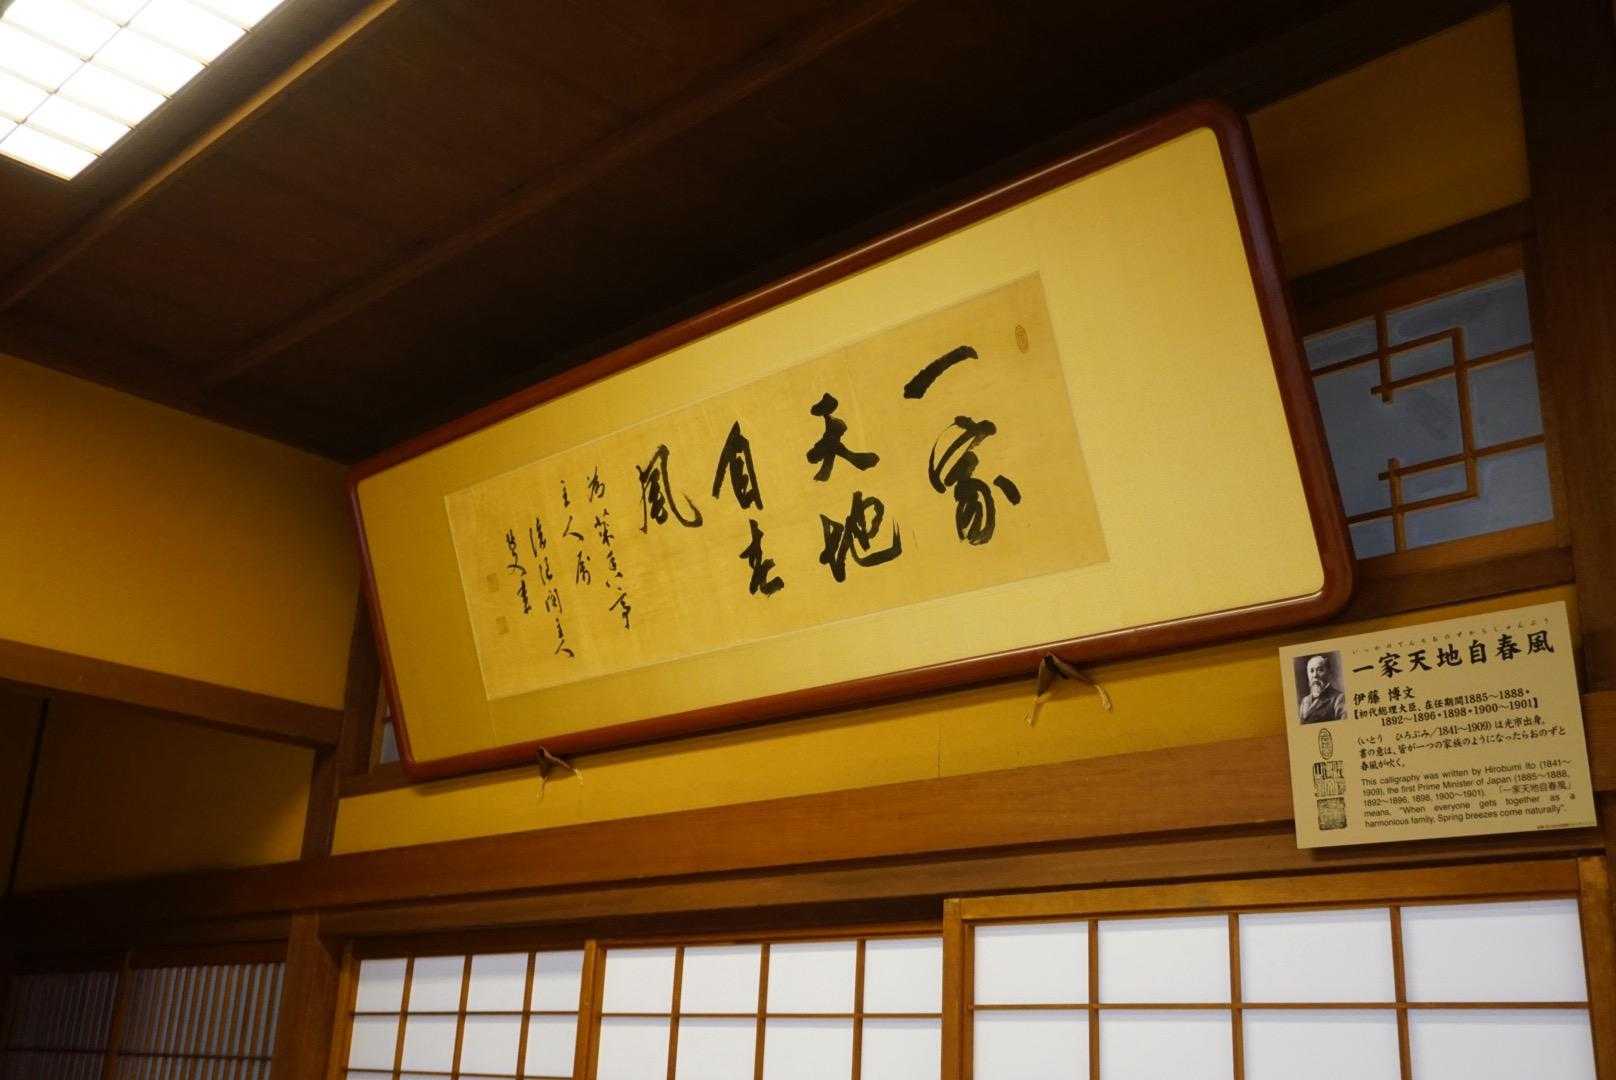 一家
天地
自春
風
為菜香亭
主人属
滄浪閣主人
博文書
一家天地自春風
伊藤 博文
【初代総理大臣、在任期間1885〜1888・
1892〜1896・1898・1900〜1901】
(いとう ひろぶみ/1841〜1909)は光市出身。
書の意は、皆が一つの家族のようになったらおのずと
春風が吹く。
This calligraphy was written by Hirobumi Ito (1841〜
1909), the first Prime Minister of Japan (1885〜1888,
1892〜1896, 1898, 1900〜1901). 「一家天地自春風」
means, "When everyone gets together as a
harmonious family, Spring breezes come naturally".